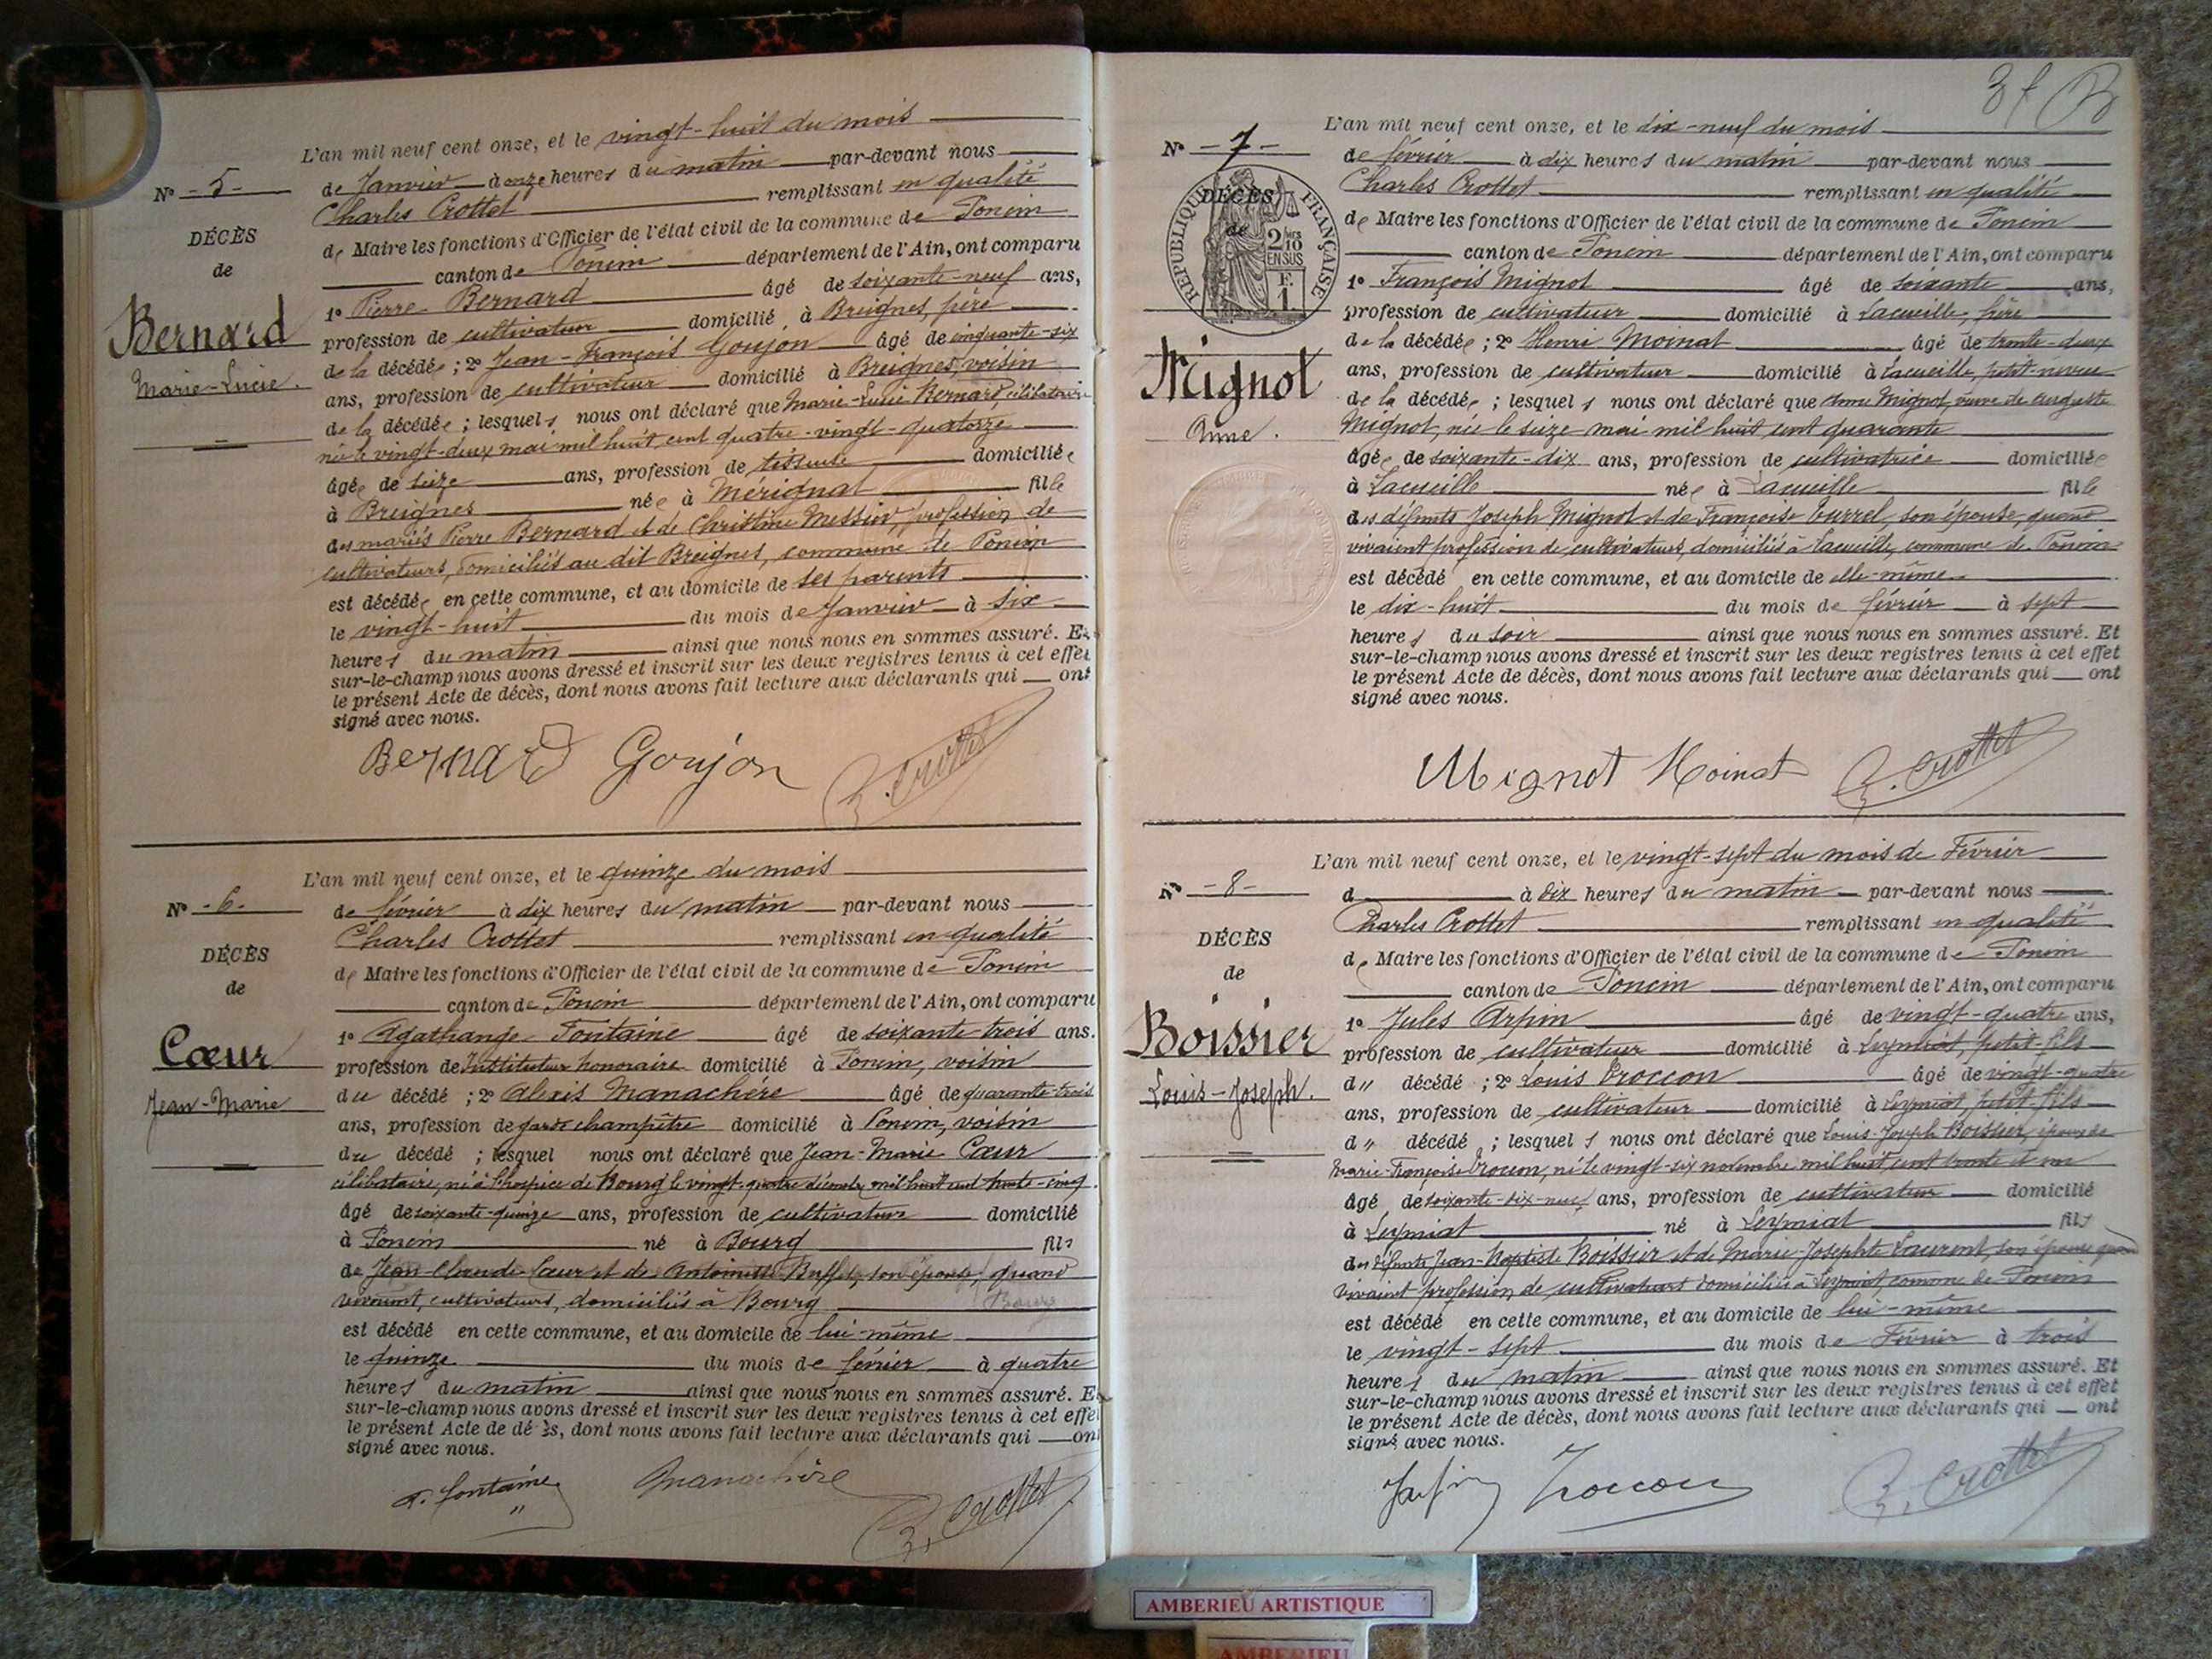 N° - 5 -
DÉCÈS
de
Bernard
Marie-Lucie.
L'an mil neuf cent onze, et le vingt-huit du mois
de Janvier à onze heures du matin par-devant nous
Charles Crottet remplissant en qualité
de Maire les fonctions d'Officier de l'état civil de la commune de Poncin
canton de Poncin département de l'Ain, ont comparu
1° Pierre Bernard âgé de soixante-neuf ans,
profession de cultivateur domicilié à Breignes, père
de la décédée ; 2° Jean-François Goujon âgé de cinquante-six
ans, profession de cultivateur domicilié à Breignes, voisin
de la décédée ; lesquels nous ont déclaré que Marie-Lucie Bernard, célibataire
née le vingt-deux mai mil huit cent quatre-vingt-quatorze
âgée de seize ans, profession de tisseuse domiciliée
à Breignes née à Mérignat fille
des mariés Pierre Bernard et de Christine Messier, profession de
cultivateurs, domiciliés au dit Breignes, commune de Poncin
est décédée en cette commune, et au domicile de ses parents
le vingt-huit du mois de Janvier à six
heures du matin ainsi que nous nous en sommes assuré. Et
sur-le-champ nous avons dressé et inscrit sur les deux registres tenus à cet effet
le présent Acte de décès, dont nous avons fait lecture aux déclarants qui ont
signé avec nous.
Bernard Goujon C. Crottet
N° - 6 -
DÉCÈS
de
Cœur
Jean-Marie
L'an mil neuf cent onze, et le quinze du mois
de février à dix heures du matin par-devant nous
Charles Crottet remplissant en qualité
de Maire les fonctions d'Officier de l'état civil de la commune de Poncin
canton de Poncin département de l'Ain, ont comparu
1° Agathange Fontaine âgé de soixante-trois ans.
profession de Instituteur honoraire domicilié à Poncin, voisin
du décédé ; 2° Alexis Manachère âgé de quarante-trois
ans, profession de garde champêtre domicilié à Poncin, voisin
du décédé ; lesquel nous ont déclaré que Jean-Marie Cœur
célibataire, né à l'hospice de Bourg le vingt-quatre décembre mil huit cent trente-cinq.
âgé de soixante-quinze ans, profession de cultivateur domicilié
à Poncin né à Bourg fils
de Jean-Claude Cœur et de Antoinette Buffet, son épouse, quand
vivaient, cultivateurs, domiciliés à Bourg
est décédé en cette commune, et au domicile de lui-même
le quinze du mois de février à quatre
heures du matin ainsi que nous nous en sommes assuré. Et
sur-le-champ nous avons dressé et inscrit sur les deux registres tenus à cet effet
le présent Acte de décès, dont nous avons fait lecture aux déclarants qui ont
signé avec nous.
A. Fontaine Manachère C. Crottet
N° - 7 -
DÉCÈS
de
RÉPUBLIQUE FRANÇAISE
2/10 EN SUS
F. 1
Mignot
Anne.
L'an mil neuf cent onze, et le dix-neuf du mois
de février à dix heures du matin par-devant nous
Charles Crottet remplissant en qualité
de Maire les fonctions d'Officier de l'état civil de la commune de Poncin
canton de Poncin département de l'Ain, ont comparu
1° François Mignot âgé de soixante ans,
profession de cultivateur domicilié à Lacueille, frère
de la décédée ; 2° Henri Moinat âgé de trente-deux
ans, profession de cultivateur domicilié à Lacueille, petit-neveu
de la décédée ; lesquels nous ont déclaré que Anne Mignot, veuve de Auguste
Mignot, née le seize mai mil huit cent quarante
âgée de soixante-dix ans, profession de cultivatrice domiciliée
à Lacueille née à Lacueille fille
des défunts Joseph Mignot et de Françoise Curzel, son épouse, quand
vivaient profession de cultivateurs, domiciliés à Lacueille, commune de Poncin
est décédé en cette commune, et au domicile de elle-même.
le dix-huit du mois de février à sept
heures du soir ainsi que nous nous en sommes assuré. Et
sur-le-champ nous avons dressé et inscrit sur les deux registres tenus à cet effet
le présent Acte de décès, dont nous avons fait lecture aux déclarants qui ont
signé avec nous.
Mignot Moinat C. Crottet
N° - 8 -
DÉCÈS
de
Boissier
Louis-Joseph.
L'an mil neuf cent onze, et le vingt-sept du mois de Février
d à dix heures du matin par-devant nous
Charles Crottet remplissant en qualité
de Maire les fonctions d'Officier de l'état civil de la commune de Poncin
canton de Poncin département de l'Ain, ont comparu
1° Jules Arpin âgé de vingt-quatre ans,
profession de cultivateur domicilié à Leymiat, petit-fils
d" décédé ; 2° Louis Trocon âgé de vingt-quatre
ans, profession de cultivateur domicilié à Leymiat, petit-fils
d" décédé ; lesquels nous ont déclaré que Louis-Joseph Boissier, époux de
Marie-Françoise Trocon, né le vingt-six novembre mil huit cent trente et un
âgé de soixante-dix-neuf ans, profession de cultivateur domicilié
à Leymiat né à Leymiat fils
des défunts Jean-Baptiste Boissier et de Marie-Josephte Laurent, son épouse quand
vivaient profession de cultivateurs domiciliés à Leymiat, comune de Poncin
est décédé en cette commune, et au domicile de lui-même
le vingt-sept du mois de Février à trois
heures du matin ainsi que nous nous en sommes assuré. Et
sur-le-champ nous avons dressé et inscrit sur les deux registres tenus à cet effet
le présent Acte de décès, dont nous avons fait lecture aux déclarants qui ont
signé avec nous.
Trocon C. Crottet
AMBERIEU ARTISTIQUE
AMBERIEU